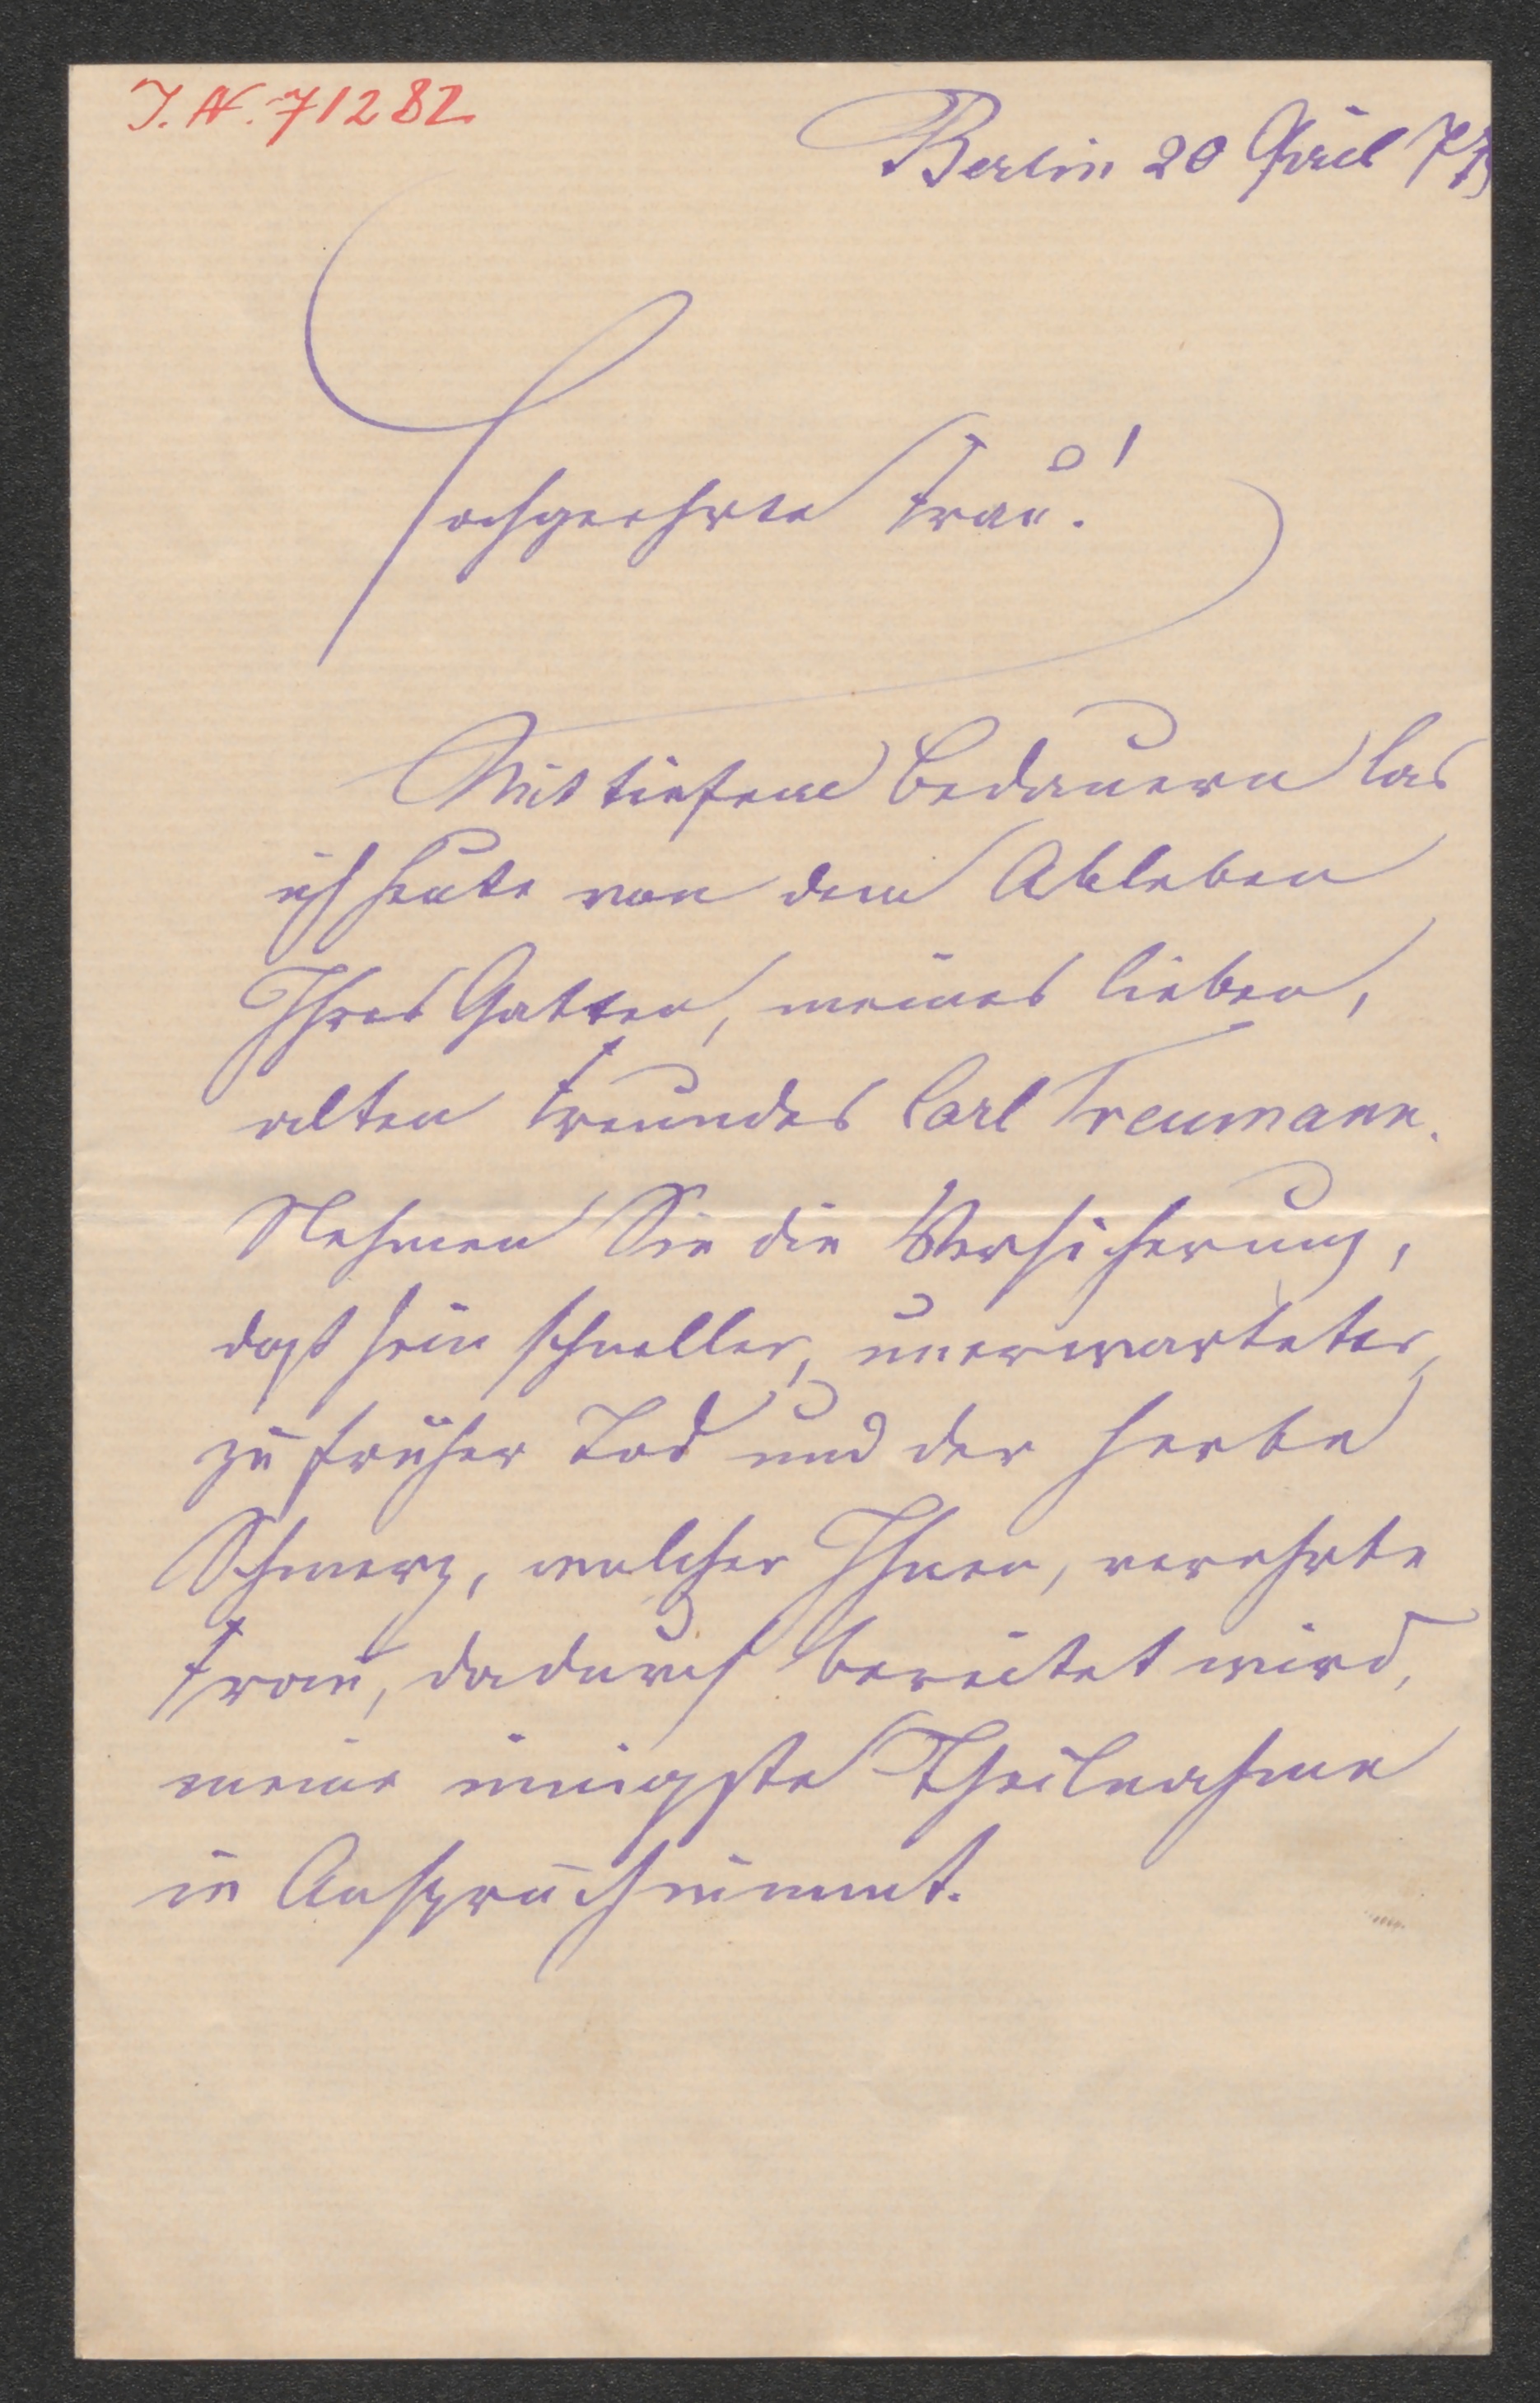 J. N. 71282
Berlin 20 April 77
Hochgeehrte Frau!
Mit tiefem Bedauern las
ich heute von dem Ableben
Ihres Gatten, meines lieben,
alten Freundes Carl Treumann.
Nehmen Sie die Versicherung,
daß sein schneller, unerwarteter,
zu früher Tod und der herbe
Schmerz, welcher Ihnen, verehrte
Frau, dadurch bereitet wird,
meine innigste Theilnahme
in Anspruch nimmt.